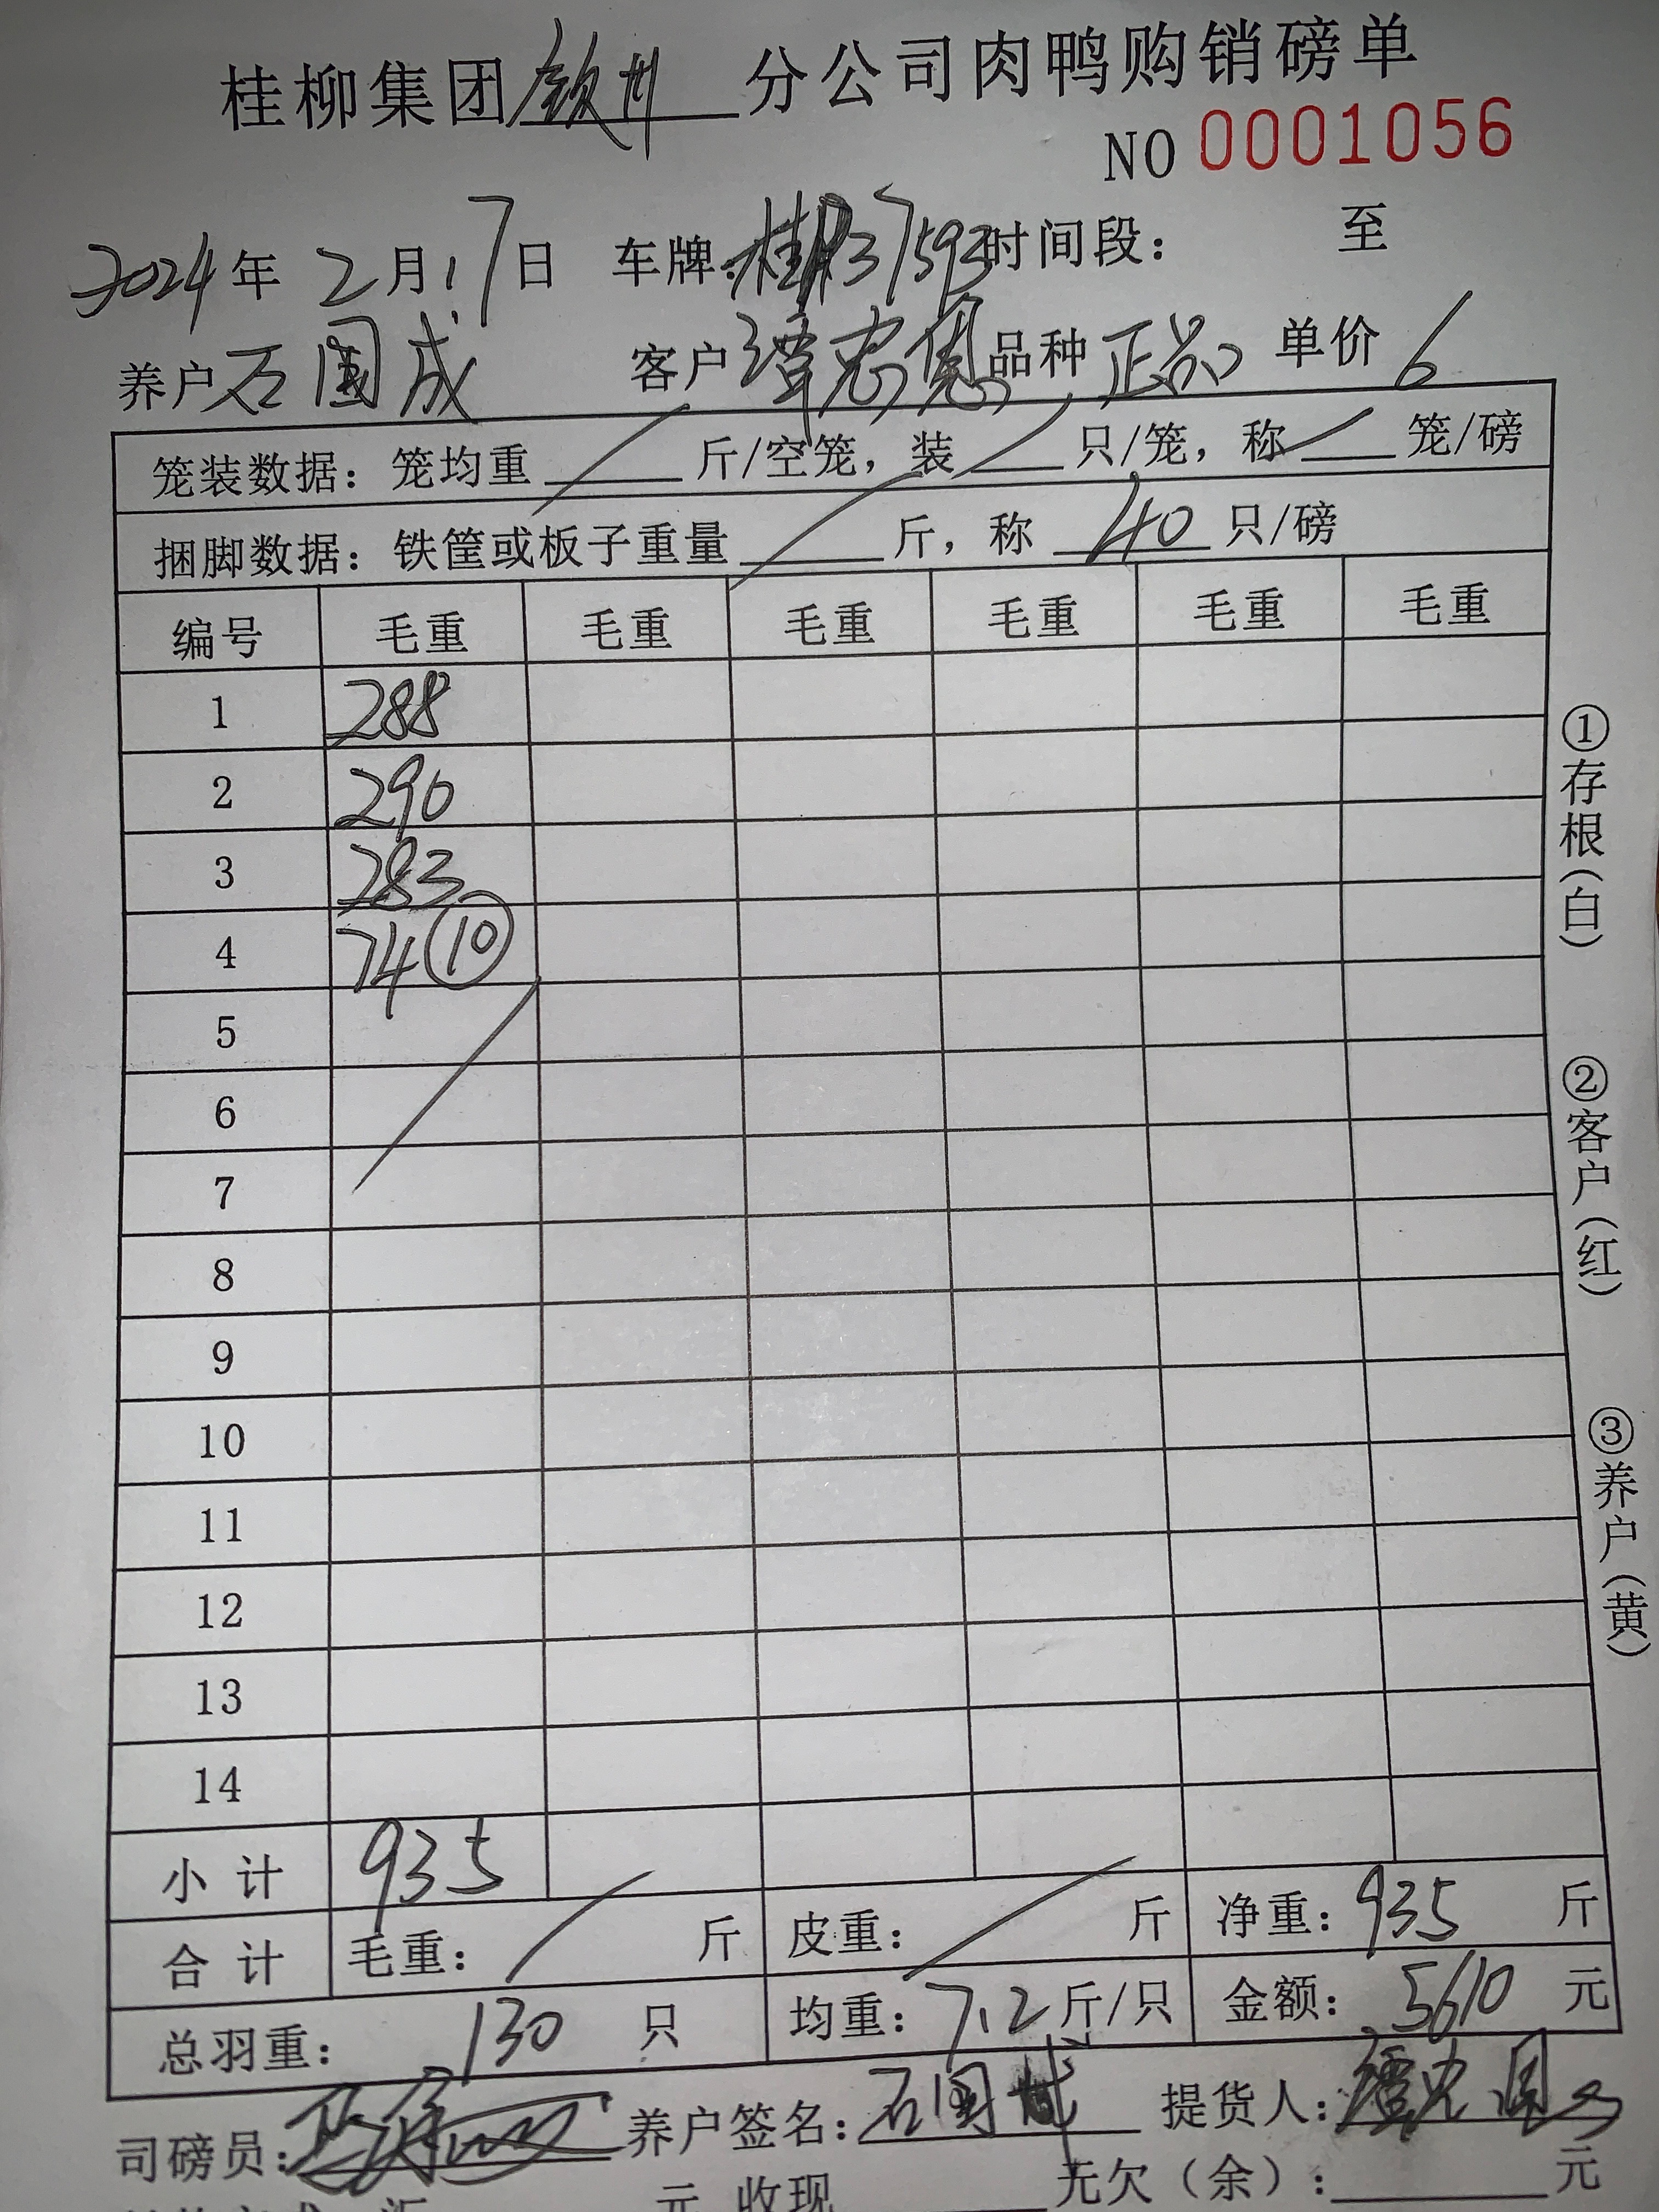 桂柳集团钦州分公司肉鸭购销磅单
NO 0001056
2024年 2月17日 车牌:桂 37593 时间段: 至
养户 石国成 客户 谭忠恩 品种 正品 单价 6
笼装数据: 笼均重 / 斤/空笼, 装 / 只/笼, 称 / 笼/磅
捆脚数据: 铁筐或板子重量 / 斤, 称 40 只/磅
编号 毛重 毛重 毛重 毛重 毛重 毛重
1 288
2 290
3 283
4 74 ⑩
5
6
7
8
9
10
11
12
13
14
小计 935
合计 毛重: / 斤 皮重: / 斤 净重: 935 斤
总羽重: 130 只 均重: 7.2 斤/只 金额: 5610 元
司磅员: 养户签名: 石国成 提货人: 谭忠恩
元 收现 元欠(余): 元
①存根(白)
②客户(红)
③养户(黄)